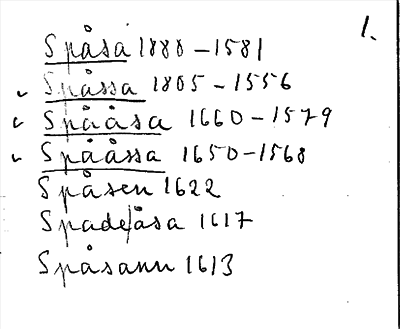 1.
Spåsa 1880-1581
Spåssa 1805-1556
Spååsa 1660-1579
Spååssa 1650-1568
Spåsen 1622
Spadeåsa 1617
Spåsann 1613